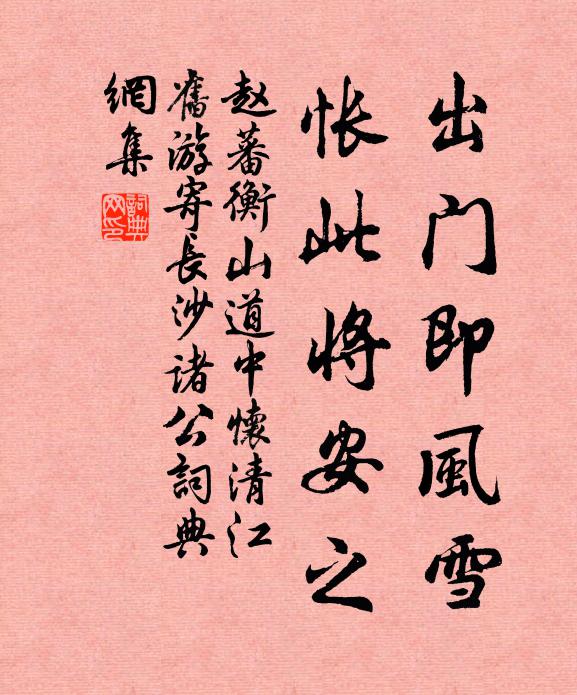 出门即風雪
悵此將安之
赵蕃衡山道中懷清江
舊游寄長沙诸公詞典
網集
詞典
网印